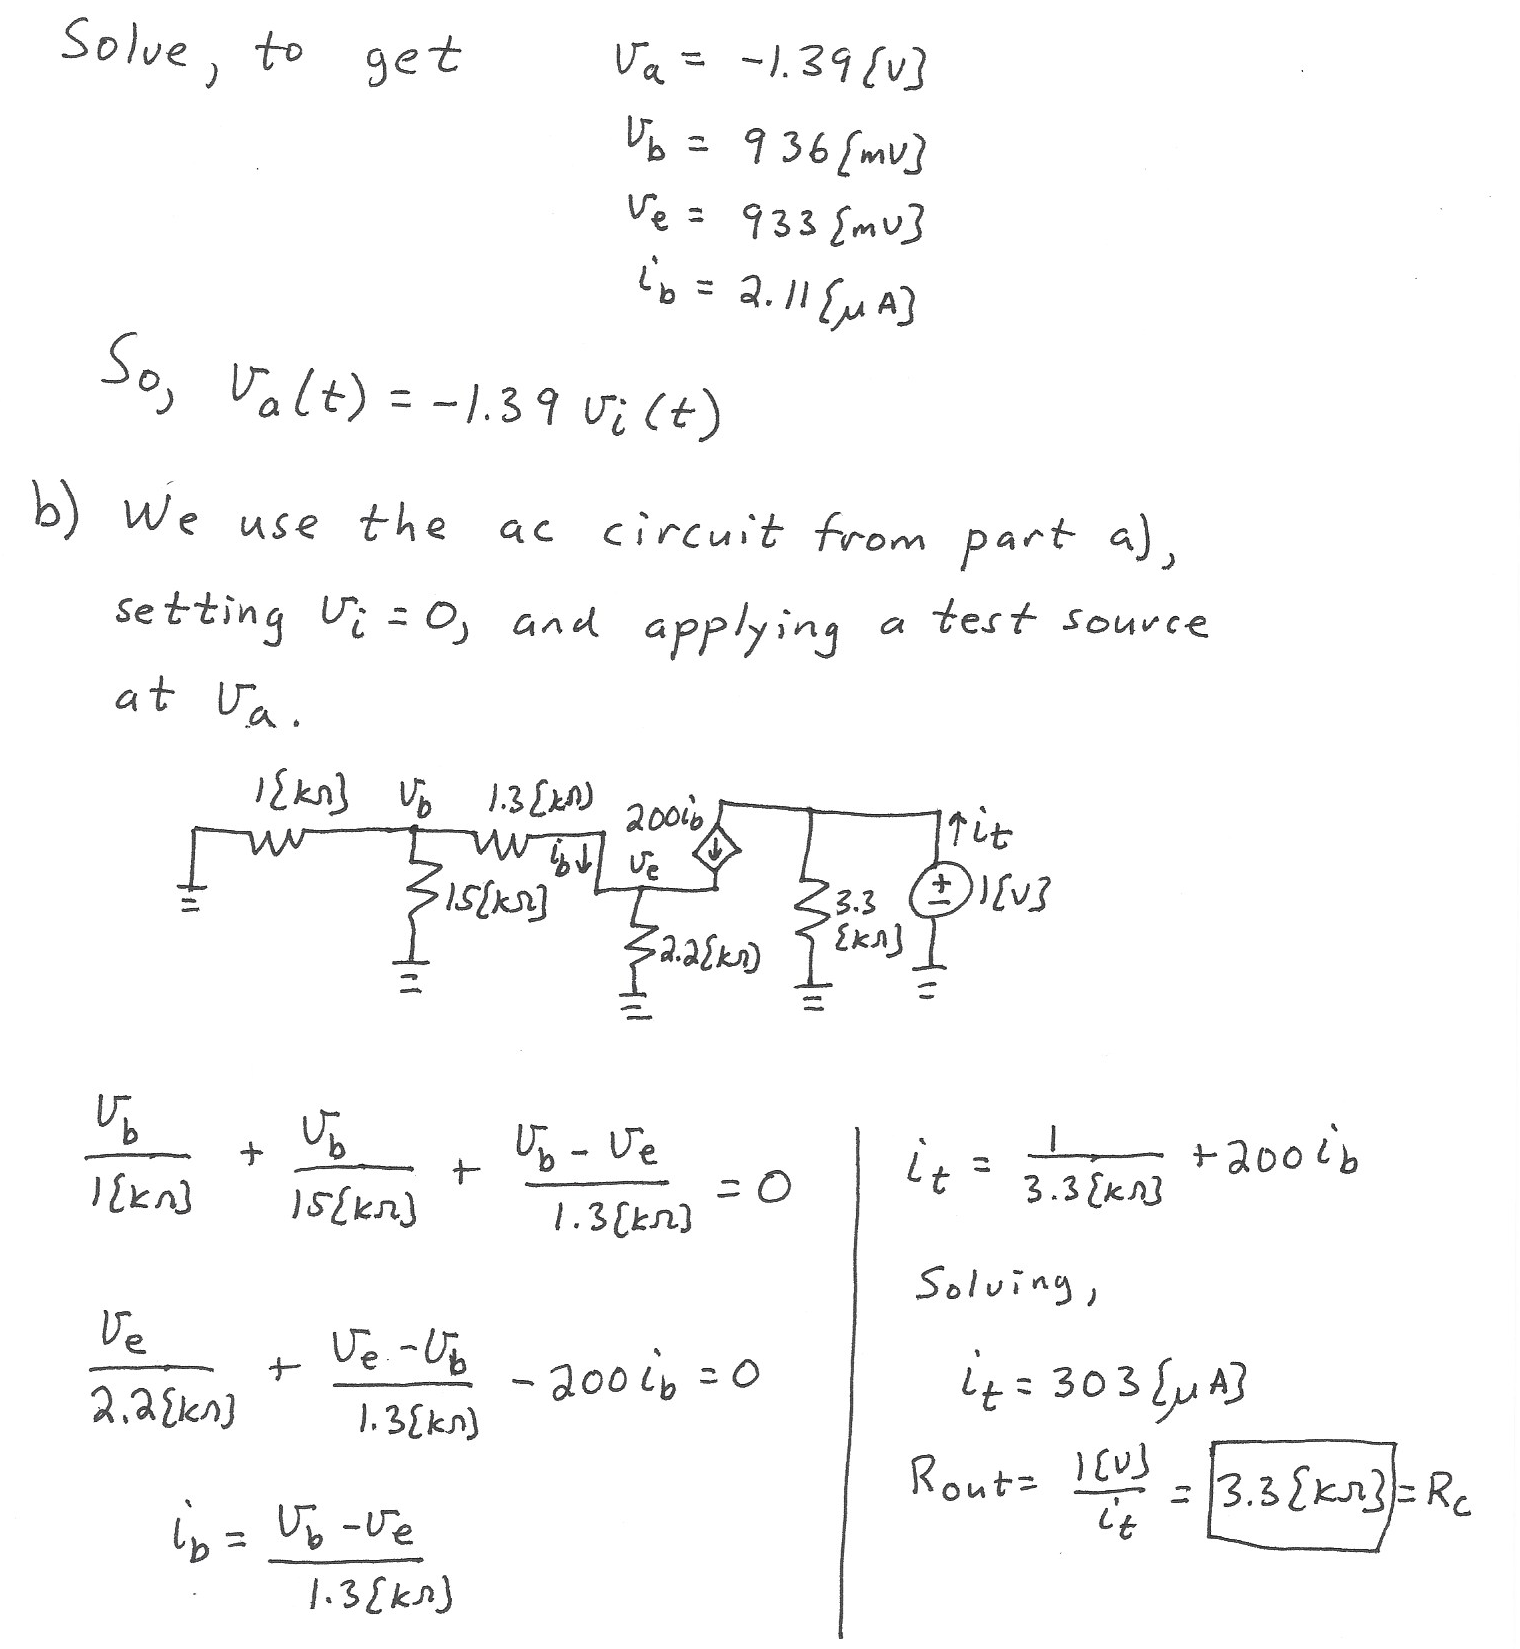 Solve, to get va = -1.39 {V}
vb = 936 {mV}
ve = 933 {mV}
ib = 2.11 {μA}
So, va(t) = -1.39 vi(t)
b) We use the ac circuit from part a),
setting vi = 0, and applying a test source
at va.
1{kΩ} vb 1.3{kΩ} 200ib ↑it
ib↓ ve
15{kΩ} 3.3 {kΩ} + - 1{V}
2.2{kΩ}
vb/1{kΩ} + vb/15{kΩ} + (vb - ve)/1.3{kΩ} = 0
ve/2.2{kΩ} + (ve - vb)/1.3{kΩ} - 200 ib = 0
ib = (vb - ve)/1.3{kΩ}
it = 1/3.3{kΩ} + 200 ib
Solving,
it = 303 {μA}
Rout = 1{V}/it = 3.3 {kΩ} = Rc